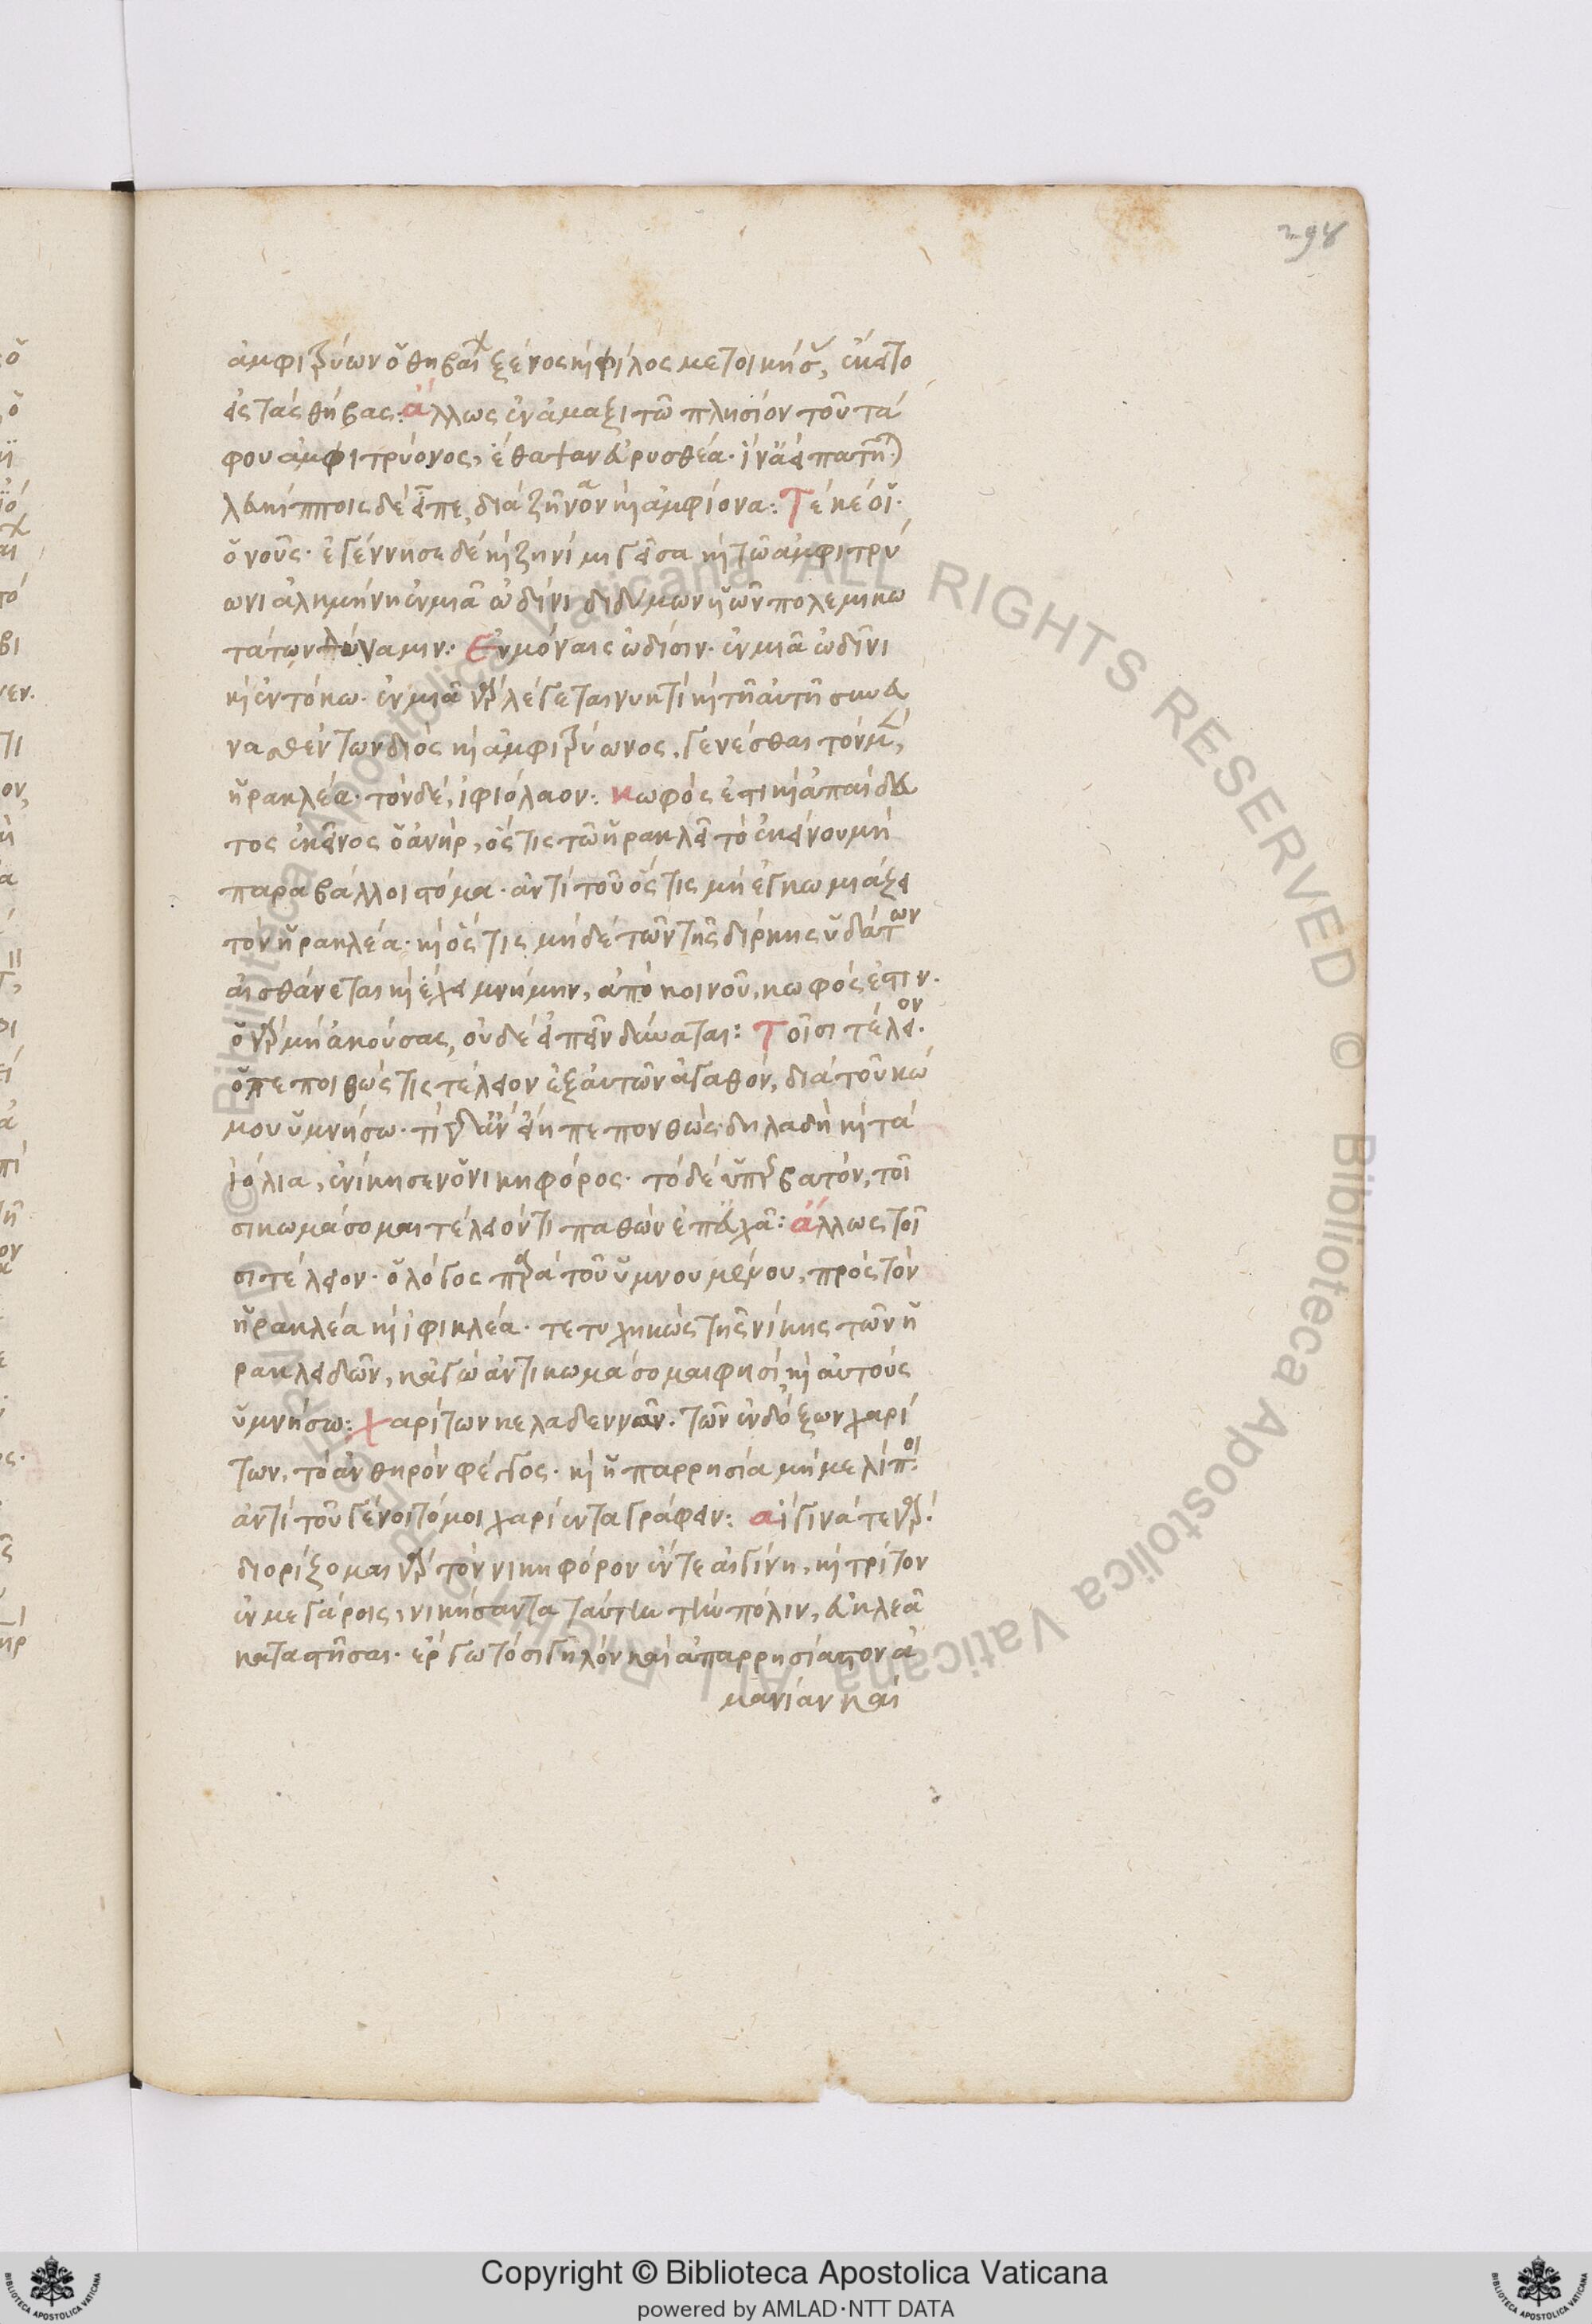 298
ἀμφιτρύων ὁ θηβαῖ χ ξένος καὶ φίλος μετοικήσ, ἐκεῖτο
εἰς τὰς θήβας: ἄλλως ἐν ἁμαξιτῶ πλησίον τοῦ τά
φου ἀμφιτρύονος, ἔθαψαν εὐρυσθέα. ἵνα
λευκίπποις δὲ εἶπε, διὰ ζῆνον καὶ ἀμφίονα: Τέκε οἷ.
ὁ νοῦς. ἐγέννησε δὲ καὶ ζηνὶ μιγεῖσα καὶ τῶ ἀμφιτρύ
ωνι ἀλκμήνη ἐν μιᾶ ὠδίνι διδύμων υἱῶν πολεμικω
τάτων δύναμιν: Ἐν μόναις ὠδίσιν. ἐν μιᾶ ὠδῖνι
καὶ ἐν τόκω. ἐν μιᾶ γὰρ λέγεται νυκτὶ καὶ τῆ αὐτῆ συνευ
νασθέντων διὸς καὶ ἀμφιτρύωνος, γενέσθαι τὸν μ,
ἡρακλέα. τὸν δὲ, ἰφιόλαον: κωφός ἐστι καὶ ἀπαίδευ
τος ἐκεῖνος ὁ ἀνὴρ, ὅστις τῶ ἡρακλεῖ τὸ ἐκείνου μὴ
παραβάλλοι στόμα. ἀντὶ τοῦ ὅστις μὴ ἐγκωμιάζει
τὸν ἡρακλέα. καὶ ὅστις μηδὲ τῶν τῆς δίρκης ὑδάτων
αἰσθάνεται καὶ ἔχει μνήμην, ἀπὸ κοινοῦ, κωφός ἐστιν.
ὁ γὰρ μὴ ἀκούσας, οὐδὲ εἰπεῖν δύναται: Τοῖσι τέλειον.
ὁ πεποιθώς τις τέλειον ἐξ αὐτῶν ἀγαθὸν, διὰ τοῦ κώ
μου ὑμνήσω. τί γὰρ ἂν εἴη πεπονθὼς δηλαδὴ καὶ τὰ
ἰόλια, ἐνίκησεν ὁ νικηφόρος. τὸ δὲ ὑπερβατὸν, τοῖ
σι κωμάσομαι τέλειόν τι παθὼν ἐπ' εὐχᾶ: ἄλλως τοῖ
σι τέλειον. ὁ λόγος παρὰ τοῦ ὑμνουμένου, πρὸς τὸν
ἡρακλέα καὶ ἰφικλέα. τετυχηκὼς τῆς νίκης τῶν ἡ
ρακλειδῶν, κἀγὼ ἀντικωμάσομαι φησὶ, καὶ αὐτοὺς
ὑμνήσω: Χαρίτων κελαδεννᾶν. τῶν ἐνδόξων χαρί
των, τὸ ἀνθηρὸν φέγγος. καὶ ἡ παρρησία μή με λίποι.
ἀντὶ τοῦ γένοιτό μοι χαρίεντα γράφειν: αἰγίνα τε γὰρ.
διορίζομαι γὰρ τὸν νικηφόρον ἔν τε αἰγίνη, καὶ τρίτον
ἐν μεγάροις, νικήσαντα ταύτην τὴν πόλιν, εὐκλεᾶ
καταστῆσαι. ἔργω τὸ σιγηλὸν καὶ ἀπαρρησίαστον ἀ
μανίαν καὶ
Copyright © Biblioteca Apostolica Vaticana
powered by AMLAD·NTT DATA
© Biblioteca Apostolica Vaticana ALL RIGHTS RESERVED © Biblioteca Apostolica Vaticana ALL RIGHTS RESERVED